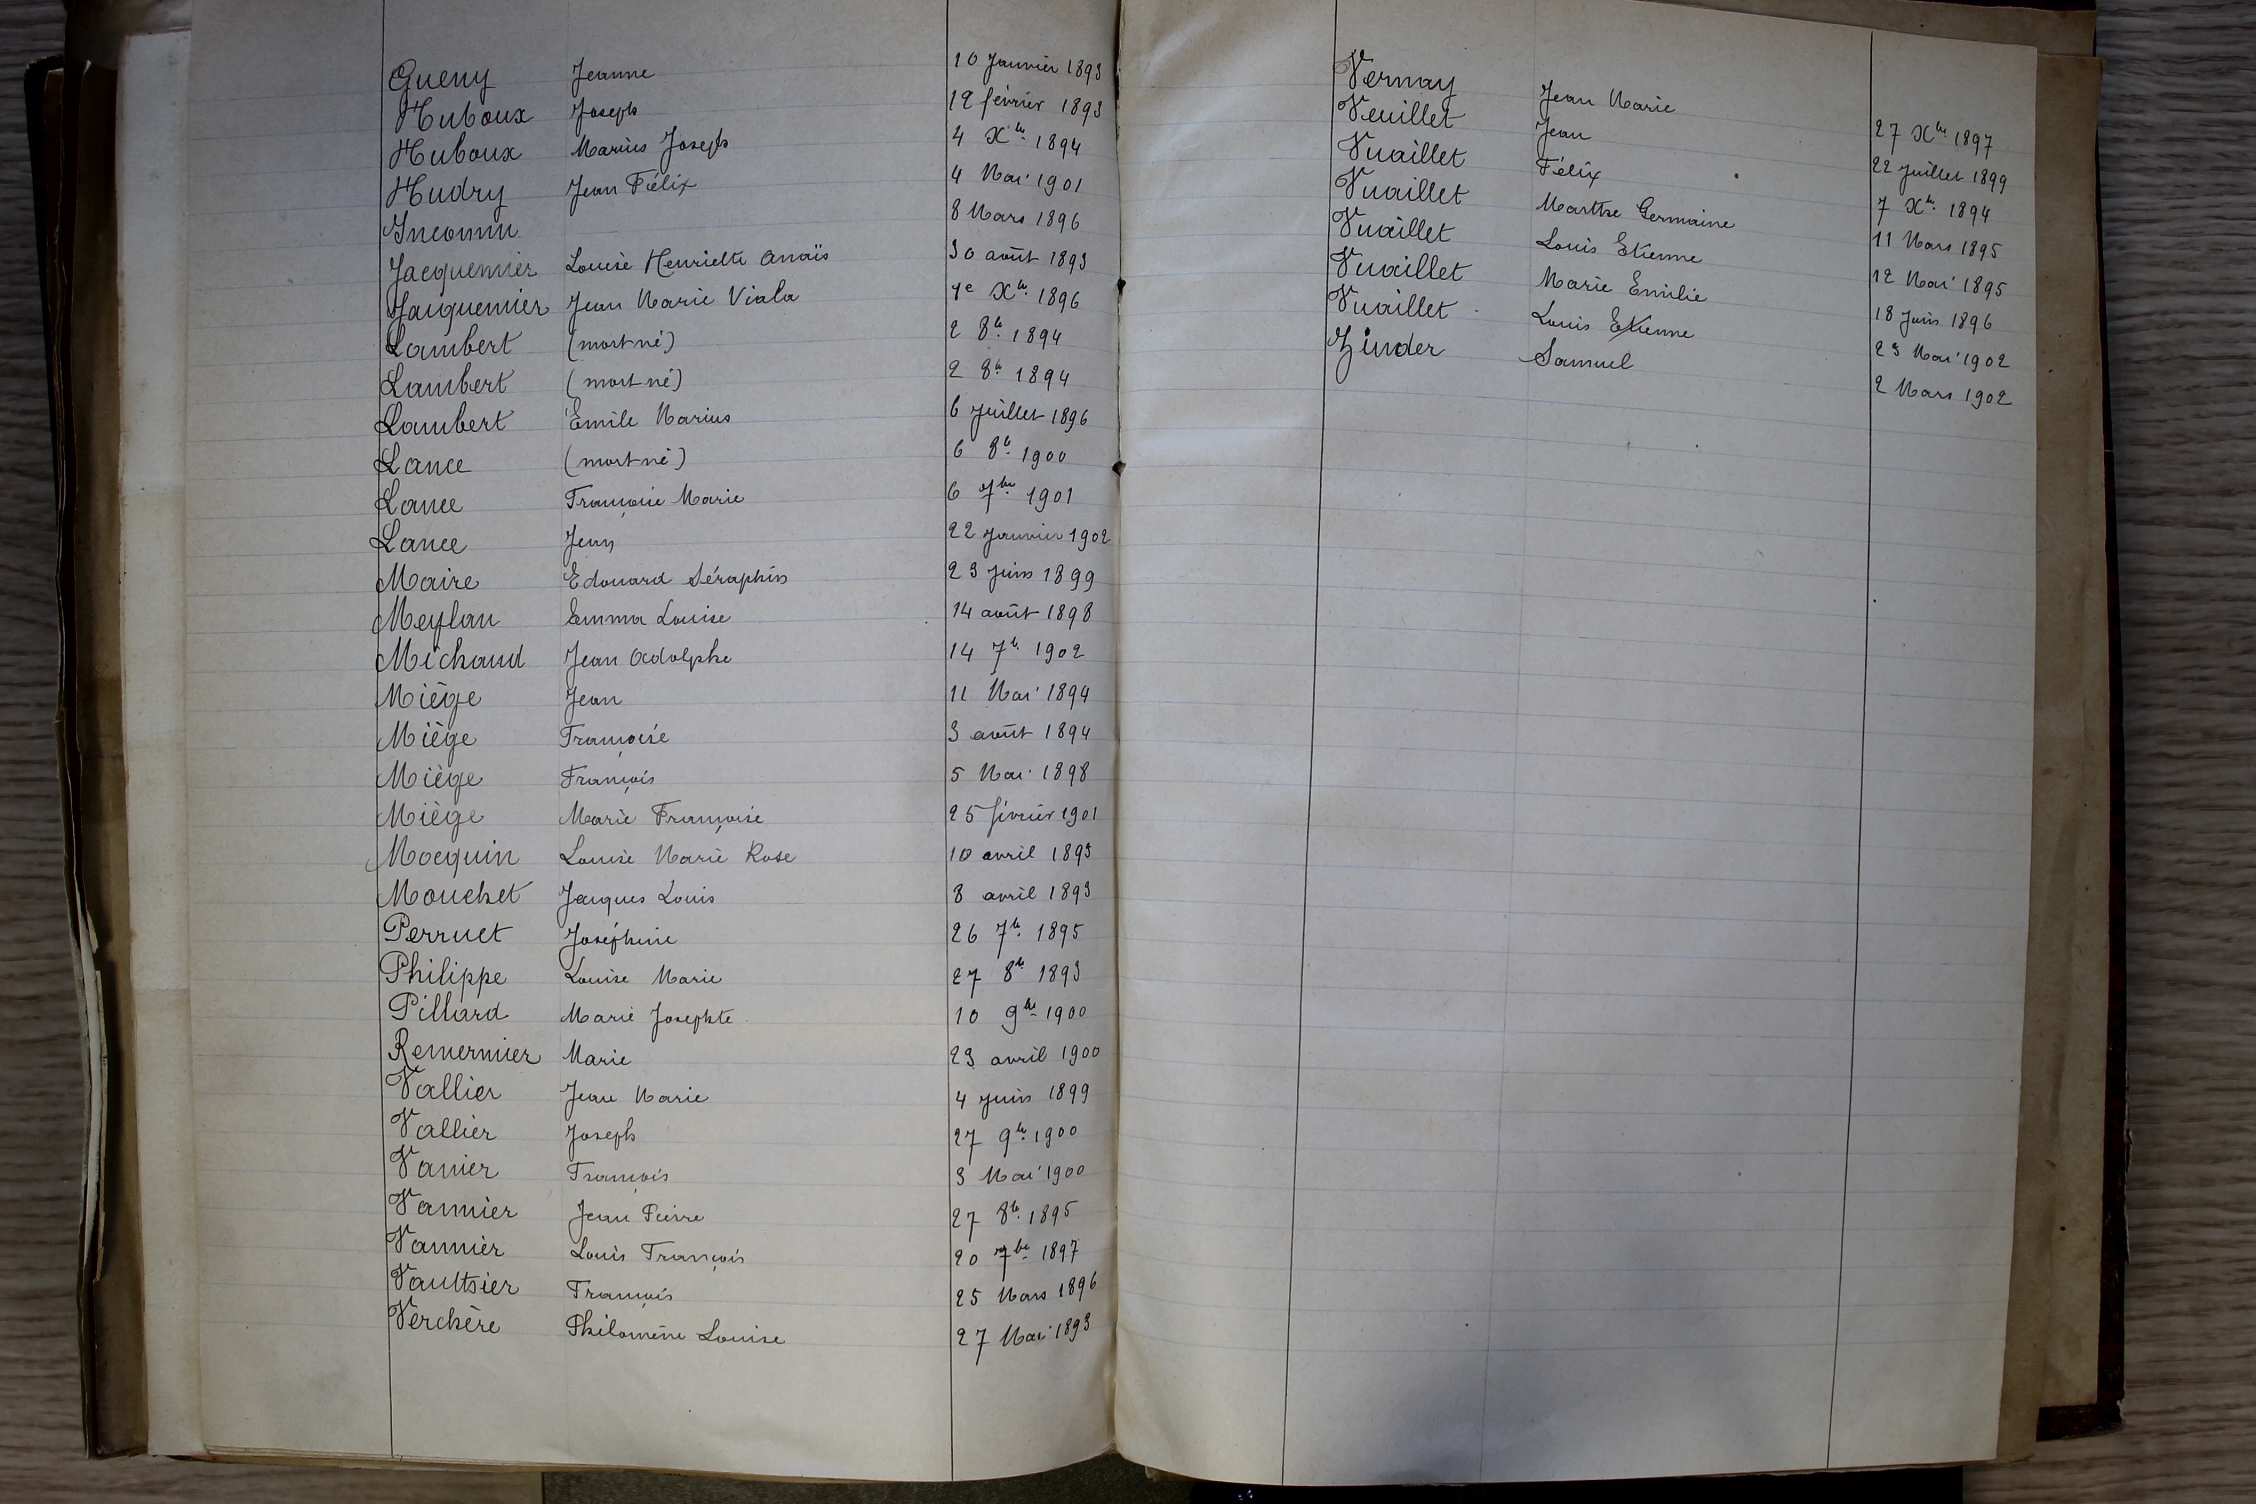 Gueny Jeanne 10 Janvier 1893
Huboux Joseph 12 février 1893
Huboux Marius Joseph 4 Xbre 1894
Hudry Jean Félix 4 Mai 1901
Inconnu 8 Mars 1896
Jacquemier Louise Henriette Anaïs 30 août 1893
Jacquemier Jean Marie Viala 1e Xbre 1896
Lambert (mort né) 2 8bre 1894
Lambert (mort né) 2 8bre 1894
Lambert Emile Marius 6 Juillet 1896
Lance (mort né) 6 8bre 1900
Lance Françoise Marie 6 7bre 1901
Lance Jeny 22 Janvier 1902
Maire Edouard Séraphin 23 Juin 1899
Meylan Emma Louise 14 août 1898
Michaud Jean Adolphe 14 7bre 1902
Miège Jean 11 Mai 1894
Miège Françoise 3 août 1894
Miège François 5 Mai 1898
Miège Marie Françoise 25 février 1901
Mocquin Louise Marie Rose 10 avril 1893
Mouchet Jacques Louis 8 avril 1893
Perruet Joséphine 26 7bre 1895
Philippe Louise Marie 27 8bre 1893
Pillard Marie Josephte 10 9bre 1900
Remermier Marie 23 avril 1900
Vallier Jean Marie 4 Juin 1899
Vallier Joseph 27 9bre 1900
Vanier François 3 Mai 1900
Vannier Jean Pierre 27 8bre 1895
Vannier Louis François 20 7bre 1897
Vaulthier François 25 Mars 1896
Verchère Philomène Louise 27 Mai 1893
Vernay Jean Marie 27 Xbre 1897
Veuillet Jean 22 Juillet 1899
Vuaillet Félix 7 Xbre 1894
Vuaillet Marthe Germaine 11 Mars 1895
Vuaillet Louis Etienne 12 Mai 1895
Vuaillet Marie Emilie 18 Juin 1896
Vuaillet Louis Etienne 23 Mai 1902
Zinder Samuel 2 Mars 1902